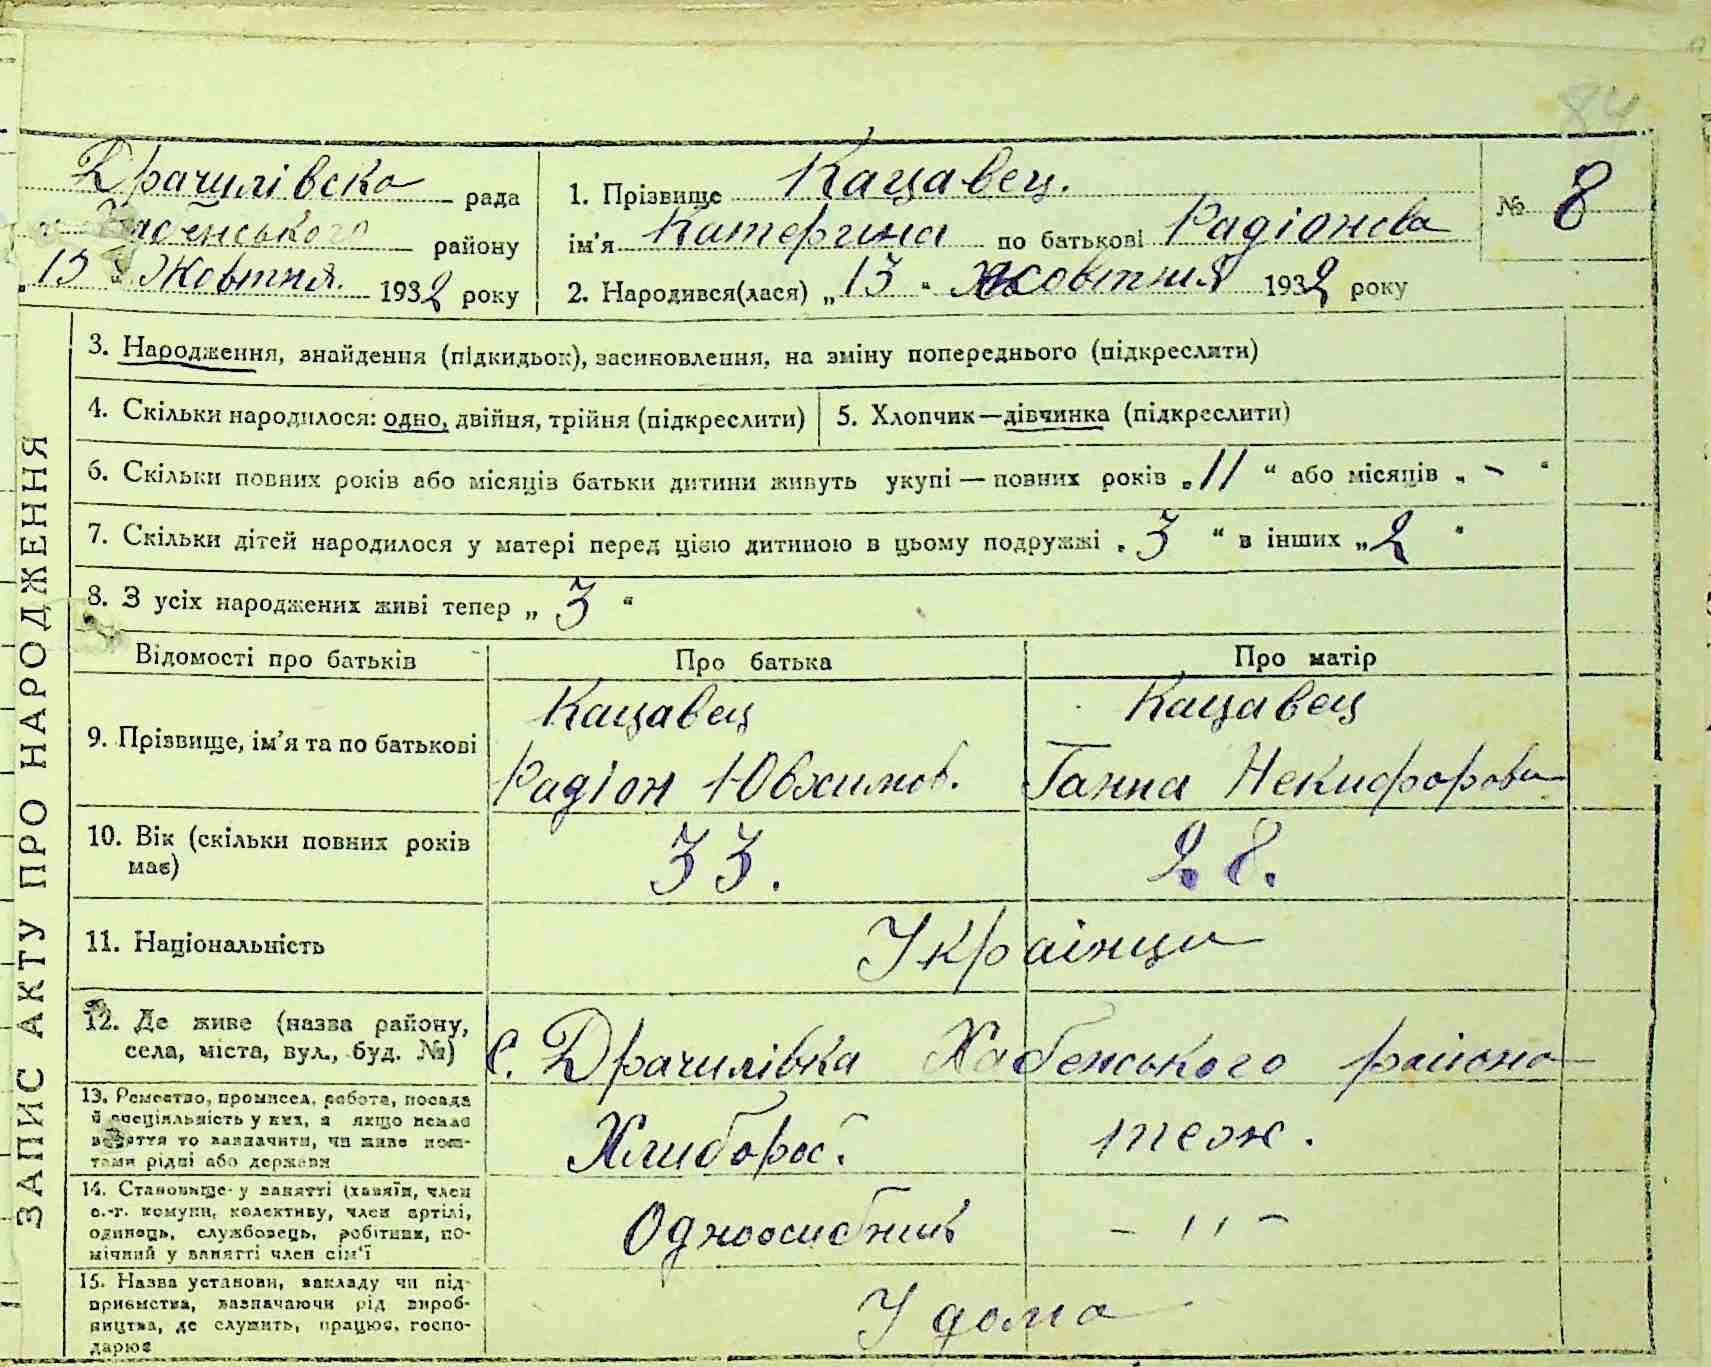 84
Драчилівска рада
Хабенського району
„15" Жовтня. 1932 року
1. Прізвище Кацавец.
ім'я Катерина по батькові Радіонова
2. Народився(лася) „13" жовтния 1932 року
№ 8
ЗАПИС АКТУ ПРО НАРОДЖЕННЯ
3. Народження, знайдення (підкидьок), засиновлення, на зміну попереднього (підкреслити)
4. Скільки народилося: одно, двійня, трійня (підкреслити)
5. Хлопчик—дівчинка (підкреслити)
6. Скільки повних років або місяців батьки дитини живуть укупі — повних років „11" або місяців „-"
7. Скільки дітей народилося у матері перед цією дитиною в цьому подружжі „3" в інших „2"
8. З усіх народжених живі тепер „3"
Відомості про батьків
Про батька
Про матір
9. Прізвище, ім'я та по батькові
Кацавец
Радіон Ювхимов.
Кацавец
Ганна Некифорова
10. Вік (скільки повних років
має)
33.
28.
11. Національність
Українци
12. Де живе (назва району,
села, міста, вул., буд. №)
С. Драчилівка Хабенського района
13. Ремество, промисел, робота, посада
й спеціяльність у них, а якщо немає
заняття то зазначити, чи живе кош-
тами рідні або держави
Хлибороб.
теж.
14. Становище у занятті (хазяїн, член
с.-г. комуни, колективу, член артілі,
одинець, службовець, робітник, по-
мічний у занятті член сім'ї
Одноосибник
- ,, -
15. Назва установи, закладу чи під-
приємства, зазначаючи рід вироб-
ництва, де служить, працює, госпо-
дарює
У дома